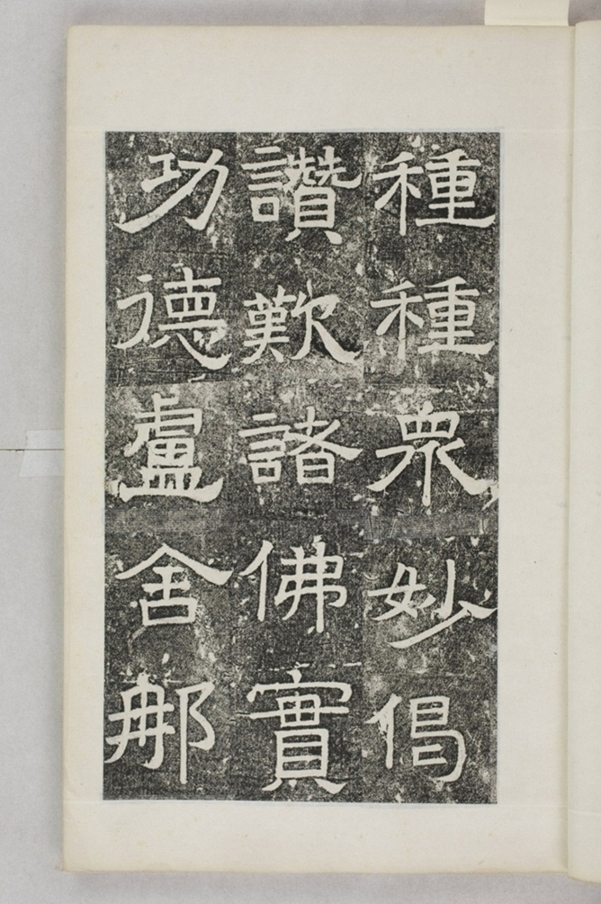 種種眾妙偈
讚歎諸佛實
功德盧舍那